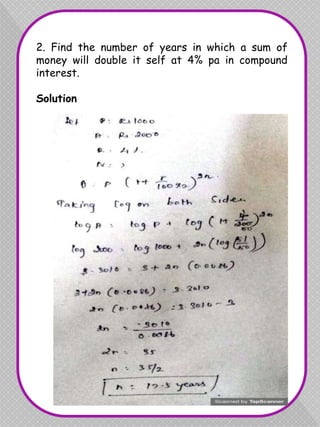 2. Find the number of years in which a sum of
money will double it self at 4% pa in compound
interest.
Solution
Let P = Rs 1000
A = Rs. 2000
R = 4%
N = ?
A = P (1+ r/100×2)^2n
Taking log on both Sides
log A = log P + log (1+ 4/200)^2n
log 2000 = log 1000 + 2n (log (51/50))
3.3010 = 3 + 2n (0.0086)
3+2n (0.0086) = 3.3010
2n (0.0086) = 3.3010 - 3
2n = .3010/0.0086
2n = 35
n = 35/2
n = 17.5 years
Scanned by TapScanner